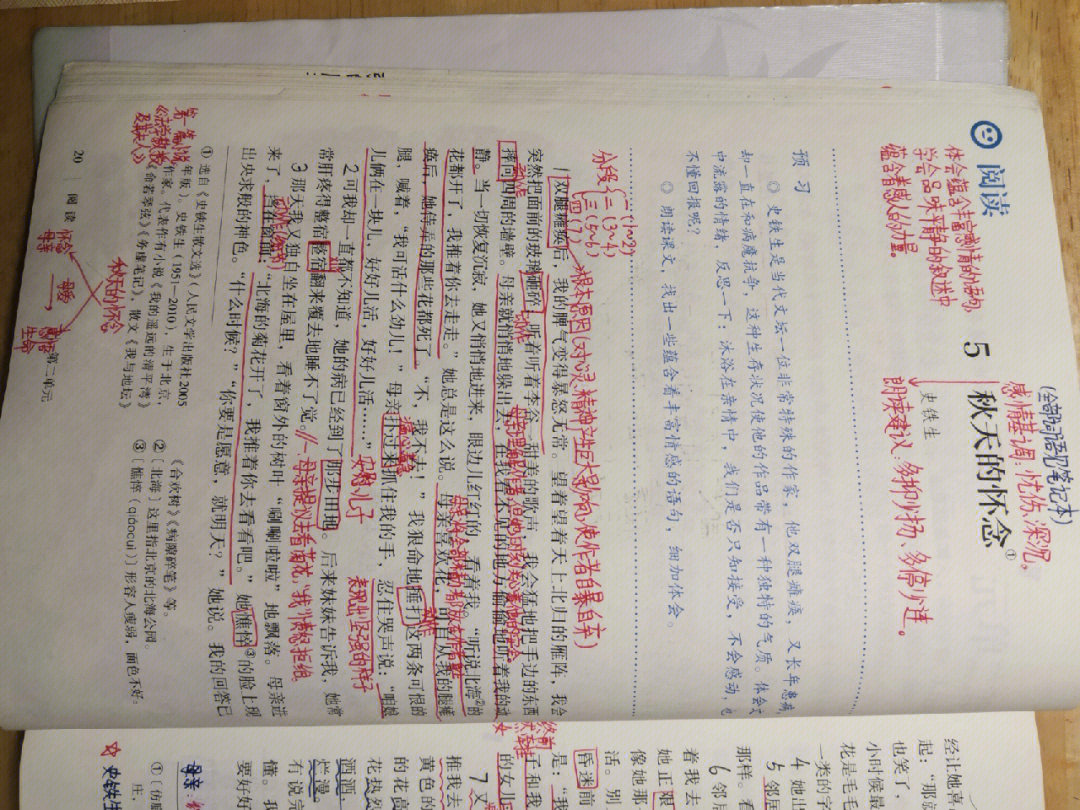 阅读
体会蕴含丰富感情的语句,
学会品味平静的叙述中
蕴含着感人的力量。
(全部词语记笔记本)
感情基调:忧伤、深沉
5 秋天的怀念①
史铁生
朗读建议:多抑少扬、多停少连。
预习
◎ 史铁生是当代文坛一位非常特殊的作家,他双腿瘫痪,又长年患病
却一直在和病魔抗争,这种生存状况使他的作品带有一种独特的气质。体会文
中流露的情绪,反思一下:沐浴在亲情中,我们是否只知接受,不会感动,也
不懂回报呢?
◎ 朗读课文,找出一些蕴含着丰富情感的语句,细加体会。
分段 一(1~2) 二(3~4) 三(5~6) 四(7)
根本原因(对心灵、精神产生巨大影响,使作者自暴自弃)
1双腿瘫痪后,我的脾气变得暴怒无常。望着望着天上北归的雁阵,我会
突然把面前的玻璃砸碎;听着听着李谷一甜美的歌声,我会猛地把手边的东西
摔向四周的墙壁。母亲就悄悄地躲出去,在我看不见的地方偷偷地听着我的动
静。当一切恢复沉寂,她又悄悄地进来,眼边儿红红的,看着我。“听说北海②的
花都开了,我推着你去走走。”她总是这么说。母亲喜欢花,可自从我的腿瘫
痪后,她侍弄的那些花都死了。“不,我不去!”我狠命地捶打这两条可恨的
腿,喊着,“我可活什么劲儿!”母亲扑过来抓住我的手,忍住哭声说:“咱娘
儿俩在一块儿,好好儿活,好好儿活……”
安慰儿子
表现出坚强的样子
2可我却一直都不知道,她的病已经到了那步田地。后来妹妹告诉我,她常
常肝疼得整宿整宿翻来覆去地睡不了觉。
母亲提议去看菊花,“我”烦躁拒绝
3那天我又独自坐在屋里,看着窗外的树叶“唰唰啦啦”地飘落。母亲进
来了,挡在窗前:“北海的菊花开了,我推着你去看看吧。”她憔悴③的脸上现
出央求般的神色。“什么时候?”“你要是愿意,就明天?”她说。我的回答已
① 选自《史铁生散文选》(人民文学出版社2005
年版)。史铁生(1951—2010),生于北京,
作家。代表作有小说《我的遥远的清平湾》
《命若琴弦》《务虚笔记》,散文《我与地坛》
《合欢树》《病隙碎笔》等。
②〔北海〕这里指北京的北海公园。
③〔憔悴(qiáocuì)〕形容人瘦弱,面色不好。
第一篇小说
《法学教授
及其夫人》
秋天的怀念
怀念
母亲
母爱
感悟
生命
20
阅读
第二单元
经让她答
起:“那
也笑了,
小时候最
花是毛毛
一类的字
4 她出
5 邻居
那样。看
6 邻居
着我去
她正艰
像她那
活。别
昏迷前
是:“我
子和我
的女儿
7 又
推我去
黄色的
的花高
花热烈
洒洒,
烂漫。
有说完
懂。我
要好好
史铁生